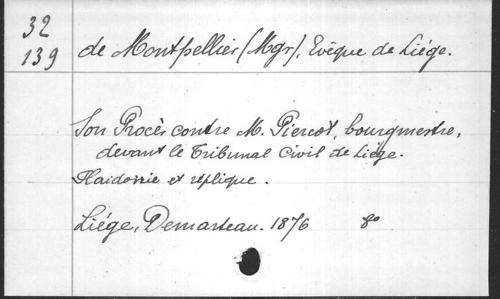 32
139
de Montpellier (Mgr), Evêque de Liége.
Son Procès contre M. Piercot, bourgmestre,
devant le Tribunal Civil de Liége.
Plaidoirie et réplique.
Liége, Demarteau. 1876 8°